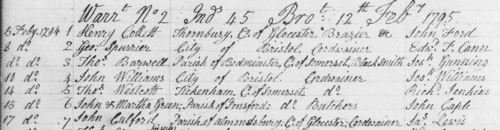 Warrt. No 2 Ind 45 Bro t. 12th Feby 1795
5 Feby. 1794 1 Henry Collett Thornbury, C. of Glocester Brazier & John Ford
8 do 2 Geo. Spurrier City of Bristol Cordwainer Edwd. T. Cann
do do 3 Thos. Barwell Parish of Bedminster, C. of Somerset, Black Smith Jos. Gunning
10 do 4 John Williams City of Bristol Cordwainer Jos. Williams
14 do 5 Thos. Westcott Tickenham, C. of Somerset do Richd. Jenkins
16 do 6 John & Martha Green, Parish of do Butchers John Cable
17 do 7 John Parish of almondsbury, C. of Glocester, Cordwainer Jas. Lewis